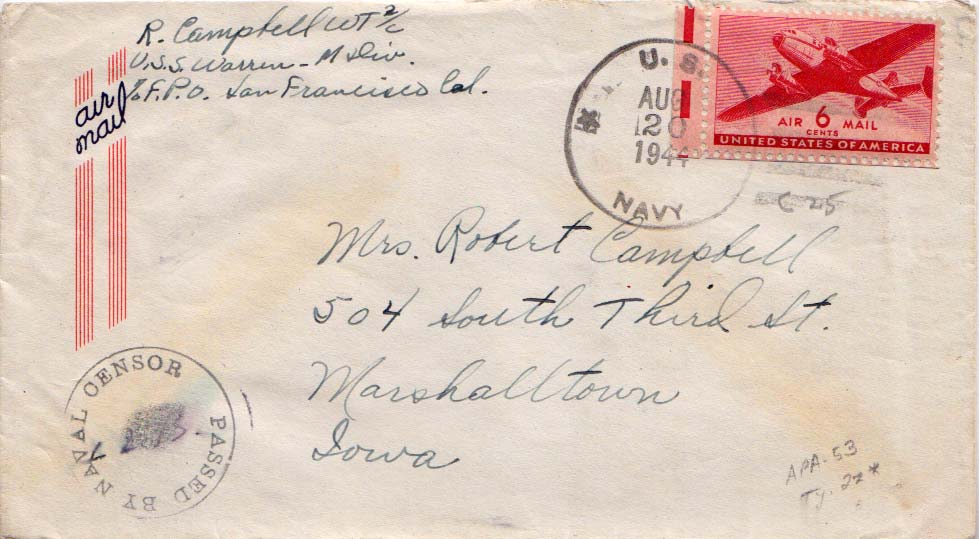 R. Campbell WT 2/c
U.S.S. Warren - M Div.
℅ F.P.O. San Francisco Cal.
air
mail
U. S.
AUG
20
1944
NAVY
AIR 6 MAIL
CENTS
UNITED STATES OF AMERICA
Mrs. Robert Campbell
504 South Third St.
Marshalltown
Iowa
PASSED BY NAVAL CENSOR
APA-53